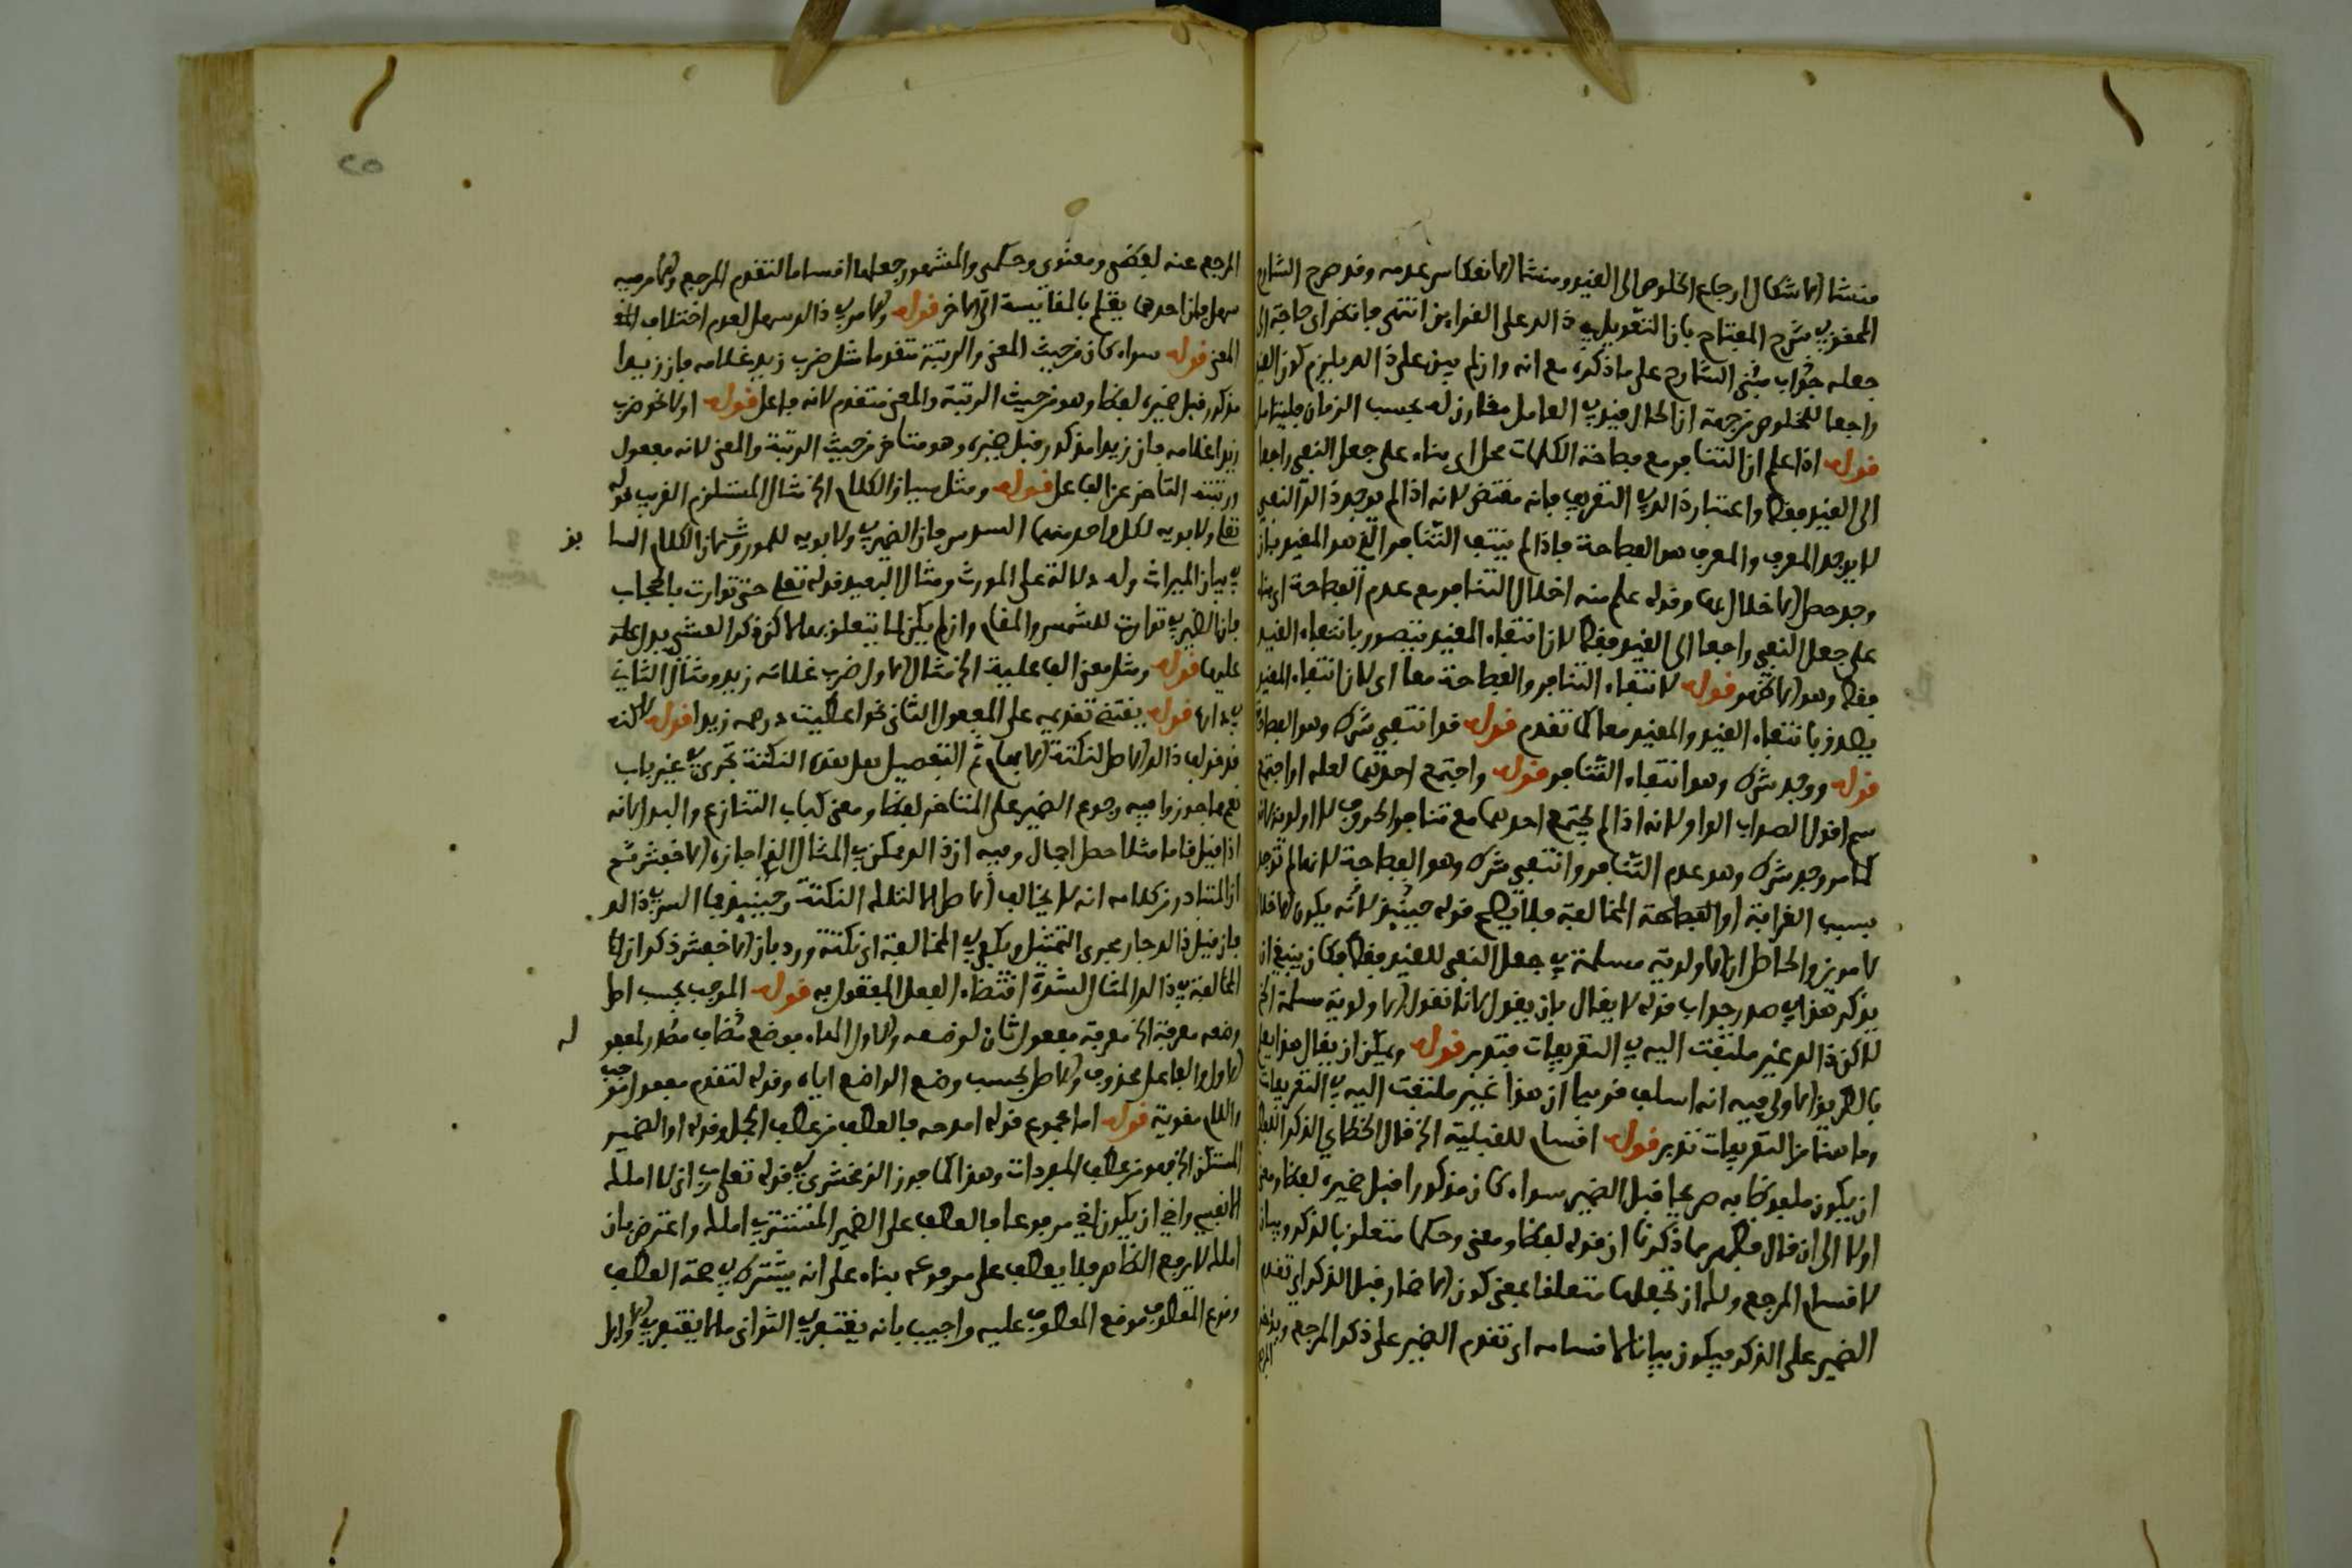 منشا الاشكال ارجاع الخلوص الى القيد ومنشا الانعكاس عدمه وقد صرح الشارح
المحقق في شرح المفتاح بان التعويل في ذلك على القراين انتهى فانظر اى حاجة الى
جعله جواب مبنى الشارح على ما ذكره مع انه وان لم يبن على ذلك يلزم كون القيد
راجعا للخلوص من جهة ان الحال قيد في العامل مقارن له بحسب الزمان فليتامل
قوله اذا علم ان التنافر مع فصاحة الكلمات محل اى بناء على جعل النفي راجعا
الى القيد فقط واعتبار ذلك في التعريف فانه مقتض لانه اذا لم يوجد ذلك النفي
لا يوجد المعرف والمعرف هو الفصاحة فاذا لم ينتف التنافر الذى هو المقيد بان
وجد حصل الاخلال بها وقوله علم منه اخلال التنافر مع عدم الفصاحة اى بناء
على جعل النفي راجعا الى القيد فقط لان انتفاء المقيد يتصور بانتفاء القيد
فقط وهو الاظهر قوله لانتفاء التنافر والفصاحة معا اى لان انتفاء المقيد
يصدق بانتفاء القيد والمقيد معا كما تقدم قوله قد انتفى شرط وهو الفصاحة
قوله ووجد شرط وهو انتفاء التنافر قوله واجتمع احدهما لعله او اجتمع
سم اقول الصواب الواو لانه اذا لم يجتمع احدهما مع تنافر الحروف لا اولوية لانه
كما مر وجد شرط وهو عدم التنافر وانتفى شرط وهو الفصاحة لانها لم توجد
بسبب الغرابة او الفصاحة المخالفة فلا يصح قوله حينئذ لانه يكون الاخلال
لامرين والحاصل ان الاولوية مسلمة في جعل النفي للقيد فقط فكان ينبغي ان
يذكر هذا في صدر جواب قوله لا يقال بان يقول لانا نقول الاولوية مسلمة الخ
لكن ذلك غير ملتفت اليه في التعريفات فتدبر قوله ويمكن ان يقال هذا ايضا
بالطريق الاولى فيه انه اسلف قريبا ان هذا غير ملتفت اليه في التعريفات
وما هنا من التعريفات تدبر قوله اقسام للقبلية الخ قال الخطاي الذكر اللفظي
ان يكون ملفوظا به صريحا قبل الضمير سواء كان مذكورا قبل ضميره لفظا ومعنى
اولا الى ان قال فظهر مما ذكرنا ان قوله لفظا ومعنى وحكما متعلق بالذكر وبيان
لاقسام المرجع ولك ان تجعلها متعلقا بمعنى كون الاضمار قبل الذكر اى تقدم
الضمير على الذكر فيكون بيانا لاقسامه اى تقدم الضمير على ذكر المرجع
المرجع عنه لفظى ومعنوى وحكمى والمشهور جعلها اقساما لتقدم المرجع والامر فيه
سهل فان احدهما يعلم بالمقايسة الى الاخر قوله والامر في ذلك سهل لعدم اختلاف
المعنى قوله سواء كان من حيث المعنى والرتبة متقدما مثل ضرب زيد غلامه فان زيدا
مذكور قبل ضميره لفظا وهو من حيث الرتبة والمعنى متقدم لانه فاعل قوله اولا نحو ضرب
زيدا غلامه فان زيدا مذكور قبل ضميره وهو متاخر من حيث الرتبة والمعنى لانه مفعول
ورتبته التاخر عن الفاعل قوله ومثل سياق الكلام الخ مثال المستلزم القريب قوله
تعلى ولابويه لكل واحد منهما السدس فان الضمير في ولابويه للمورث لان الكلام السا بق
في بيان الميراث وله دلالة على المورث ومثال البعيد قوله تعلى حتى توارت بالحجاب
فان الضمير في توارت للشمس والمقام وان لم يكن لما يتعلق بها لاكن ذكر العشي يدل على
عليها قوله ومثل معنى الفاعلية الخ مثال الاول ضرب غلامه زيد ومثال الثاني
في دارها قوله يقتضى تقديمه على المفعول الثانى نحو اعطيت درهمه زيدا قوله لكنه
قد خولف ذلك الاصل لنكتة الابهام ثم التفصيل لعل هذه النكتة تجرى في غير باب
نعم مما جوزوا فيه رجوع الضمير على المتاخر لفظا ومعنى كباب التنازع والبدل لانه
اذا قيل قاما مثلا حصل اجمال وفيه ان ذلك ممكن في المثال الذى اجازه الاخفش ثم
ان المتبادر من كلامه انه لا يخالف الاصل الا لتلك النكتة وحينئذ فما السر في ذلك
فان قيل ذلك جار مجرى التمثيل ويكفي في المخالفة اى نكتة ورد بان الاخفش ذكر ان لنا
المخالفة في ذلك المثال لشدة اقتضاء الفعل المفعول به قوله الموجب بحسب اصل
وضعه معرفة الخ معرفة مفعول ثان لوضعه والاول الهاء فوضع مضاف مصدر لمفعو له
الاول والفاعل محذوف والاصل بحسب وضع الواضع اياه وقوله لتقدم مفعول موجب
واللام مقوية قوله اما مجموع قوله امدحه فالعطف من عطف الجمل وقوله او الضمير
المستكن الخ فهو من عطف المفردات وهذا كما جوز الزمخشري في قوله تعلى رب انى لا املك
الا نفسى واخى ان يكون اخى مرفوعا بالعطف على الضمير المستتر في املك واعترض بان
املك لا يرفع الظاهر فلا يعطف على مرفوعه بناء على انه يشترط في صحة العطف
وقوع المعطوف موقع المعطوف عليه واجيب بانه يغتفر في الثوانى ما لا يغتفر في الاوايل